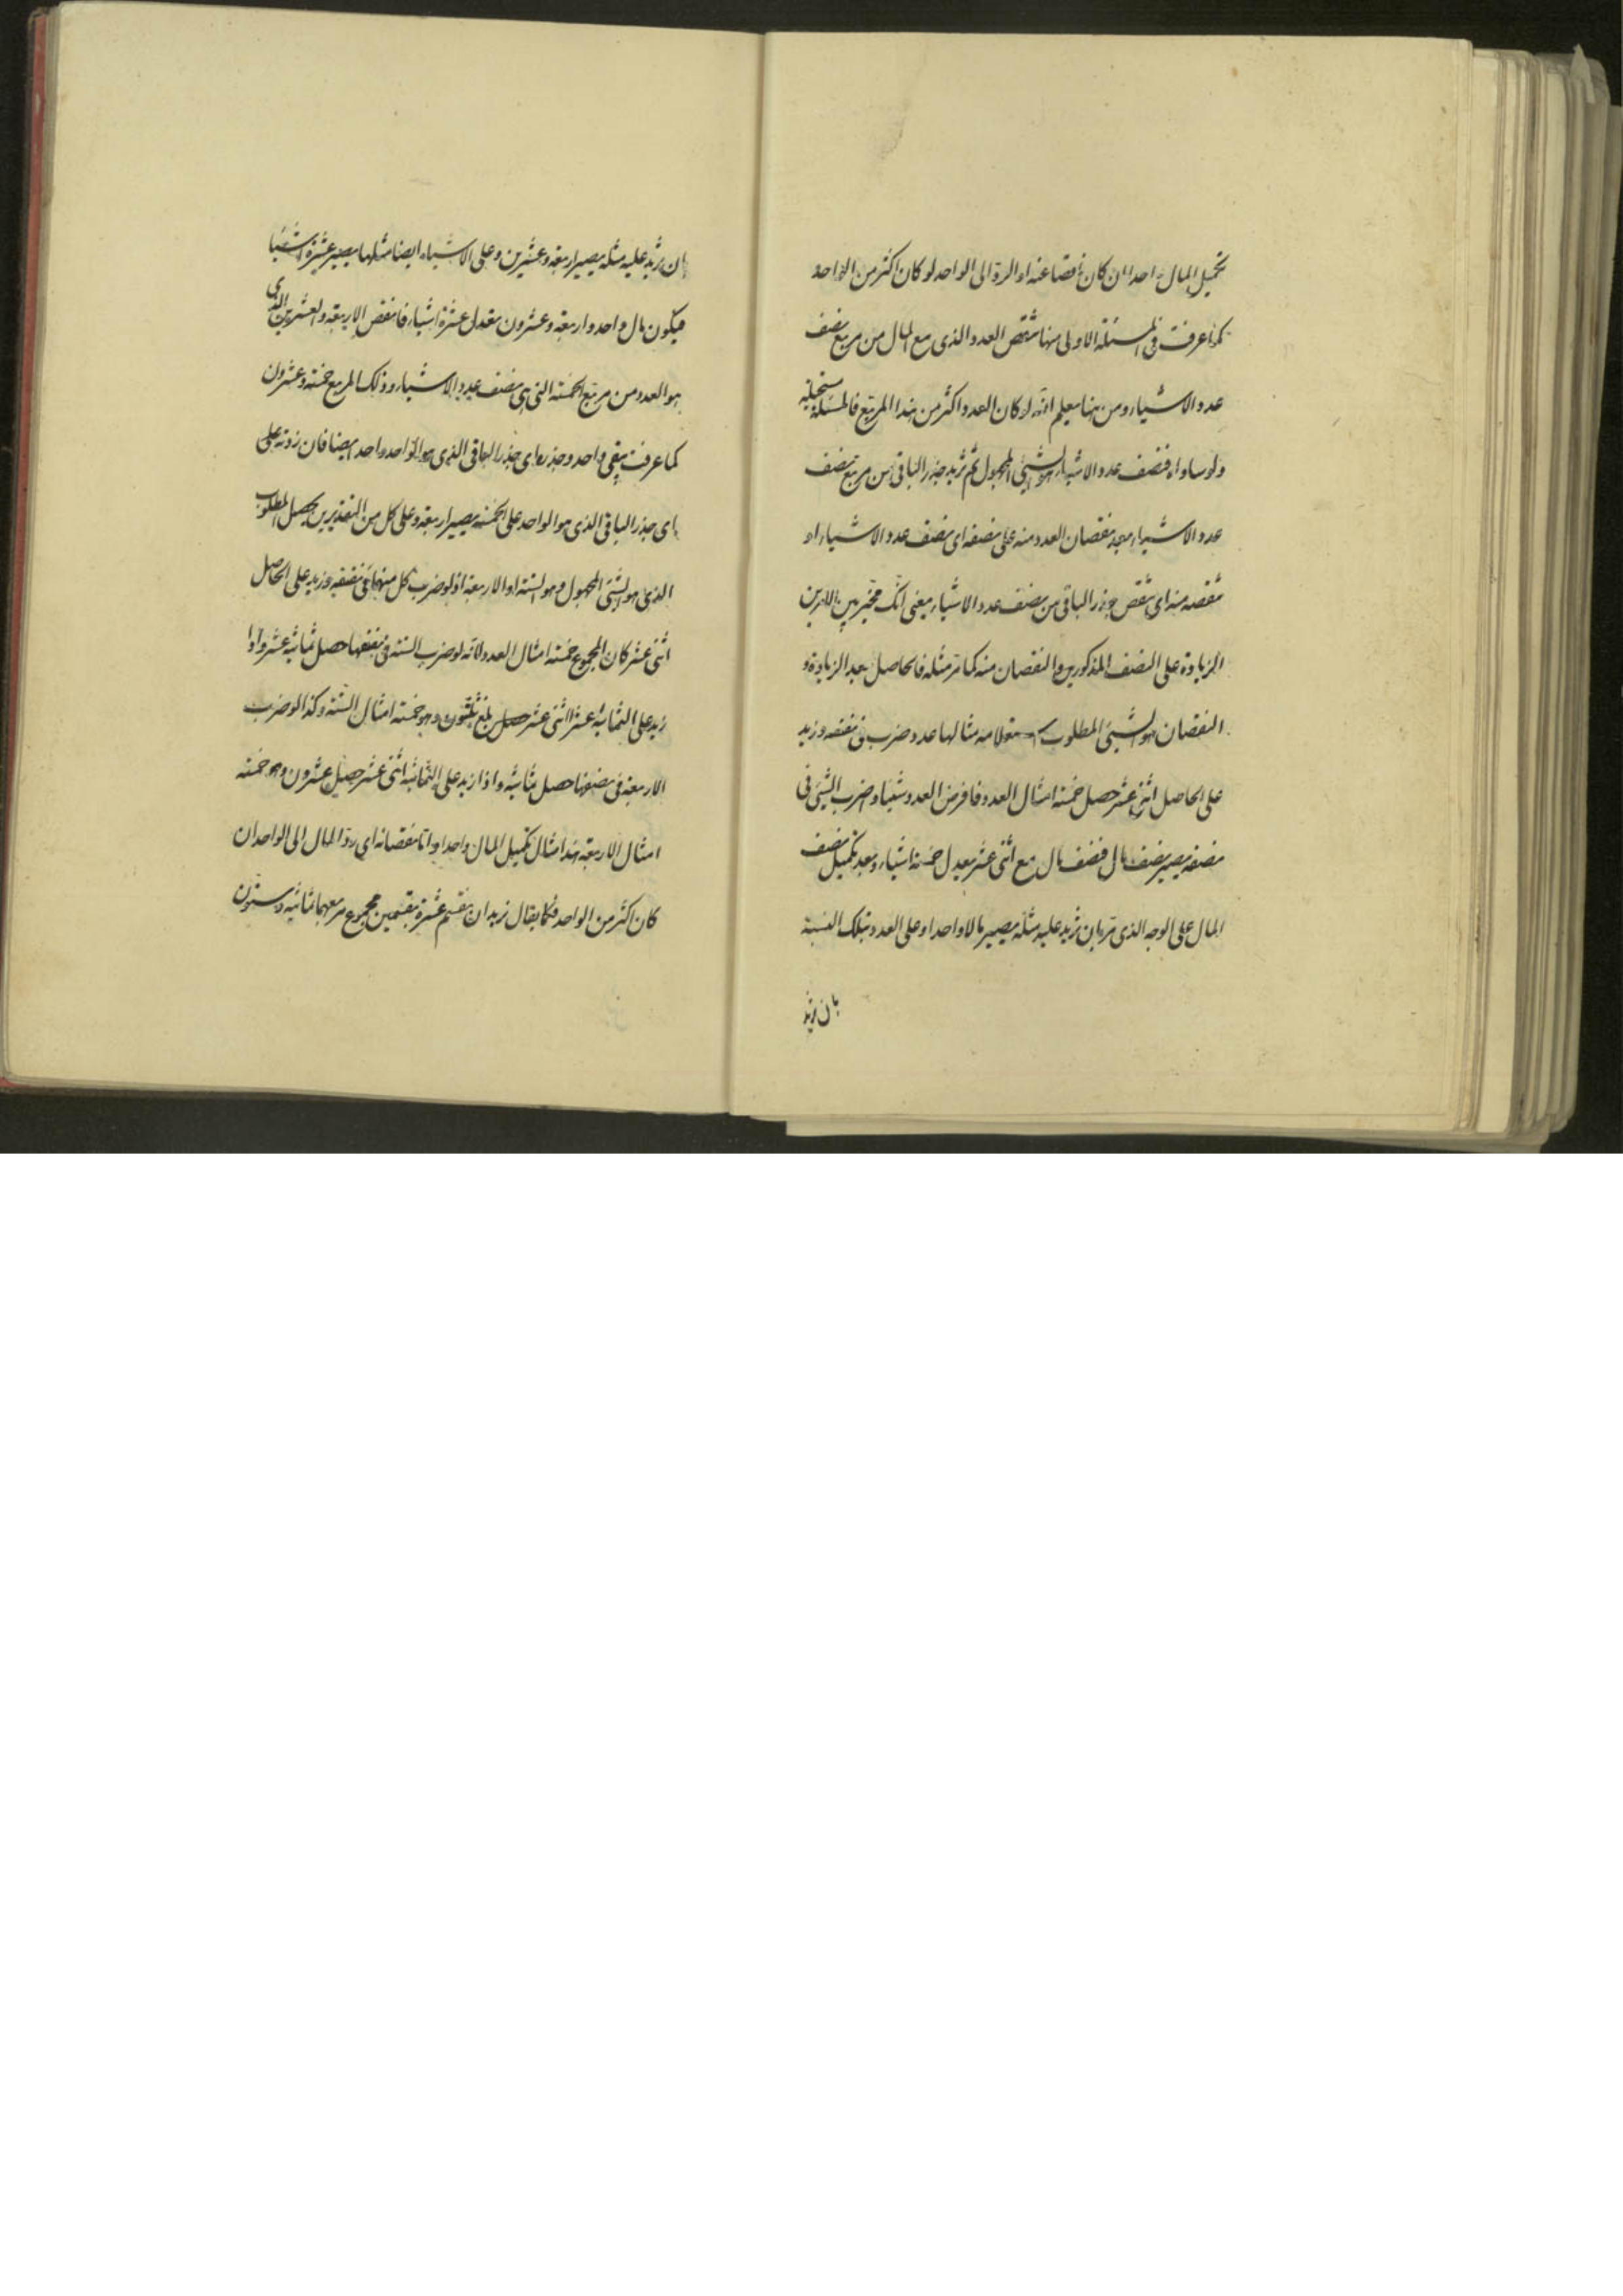 تكميل المال واحدا ان كان ناقصا عنه او الرد الى الواحد لو كان اكثر من الواحد
كما عرفت فى المسئلة الاولى منها تنقص العدد الذى مع المال من مربع نصف
عدد الاشياء ومن هنا يعلم انه لو كان العدد اكثر من هذا المربع فالمسئلة مستحيلة
ولو ساواه فنصف عدد الاشياء هو الشيئ المجهول ثم تزيد جذر الباقى من مربع نصف
عدد الاشياء بعد نقصان العدد منه على نصفه اى نصف عدد الاشياء او
تنقصه منه اى تنقص جذر الباقى من نصف عدد الاشياء يعنى انك مخير بين الامرين
الزيادة على النصف المذكور والنقصان منه كما مر مثله فالحاصل بعد الزيادة و
النقصان هو الشيئ المطلوب مثالها عدد ضرب فى نصفه وزيد
على الحاصل اثنى عشر حصل خمسة امثال العدد فافرض العدد شيئا واضرب الشيئ فى
نصفه يصير نصف مال فنصف مال مع اثنى عشر يعدل خمسة اشياء وبعد تكميل نصف
المال على الوجه الذى مر بان تزيد عليه مثله يصير مالا واحدا وعلى العدد بتلك النسبة
بان تزيد
بان تزيد عليه مثله يصير اربعة وعشرين وعلى الاشياء ايضا مثلها يصير عشرة اشياء
فيكون مال واحد واربعة وعشرون معدل عشرة اشياء فانقص الاربعة والعشرين الذى
هو العدد من مربع الخمسة التى هى نصف عدد الاشياء وذلك المربع خمسة وعشرون
كما عرفت يبقى واحد وجذره اى جذر الباقى الذى هو الواحد واحد ايضا فان زدته على
اى جذر الباقى الذى هو الواحد على الخمسة يصير اربعة وعلى كل من التقديرين يحصل المطلوب
الذى هو الشئ المجهول وهو الستة او الاربعة اذ لو ضرب كل منهما فى نصفه وزيد على الحاصل
اثنى عشر كان المجموع خمسة امثال العدد لانه لو ضرب الستة فى نصفها حصل ثمانية عشر واذا
زيد على الثمانية عشر اثنى عشر حصل بلغ ثلثون وهو خمسة امثال الستة وكذا لو ضرب
الاربعة فى نصفها حصل ثمانية واذا زيد على الثمانية اثنى عشر حصل عشرون وهو خمسة
امثال الاربعة هذا مثال تكميل المال واحدا واما نقصانه اى رد المال الى الواحد ان
كان اكثر من الواحد فكما يقال نريد ان نقسم عشرة بقسمين مجموع مربعهما ثمانية وستون